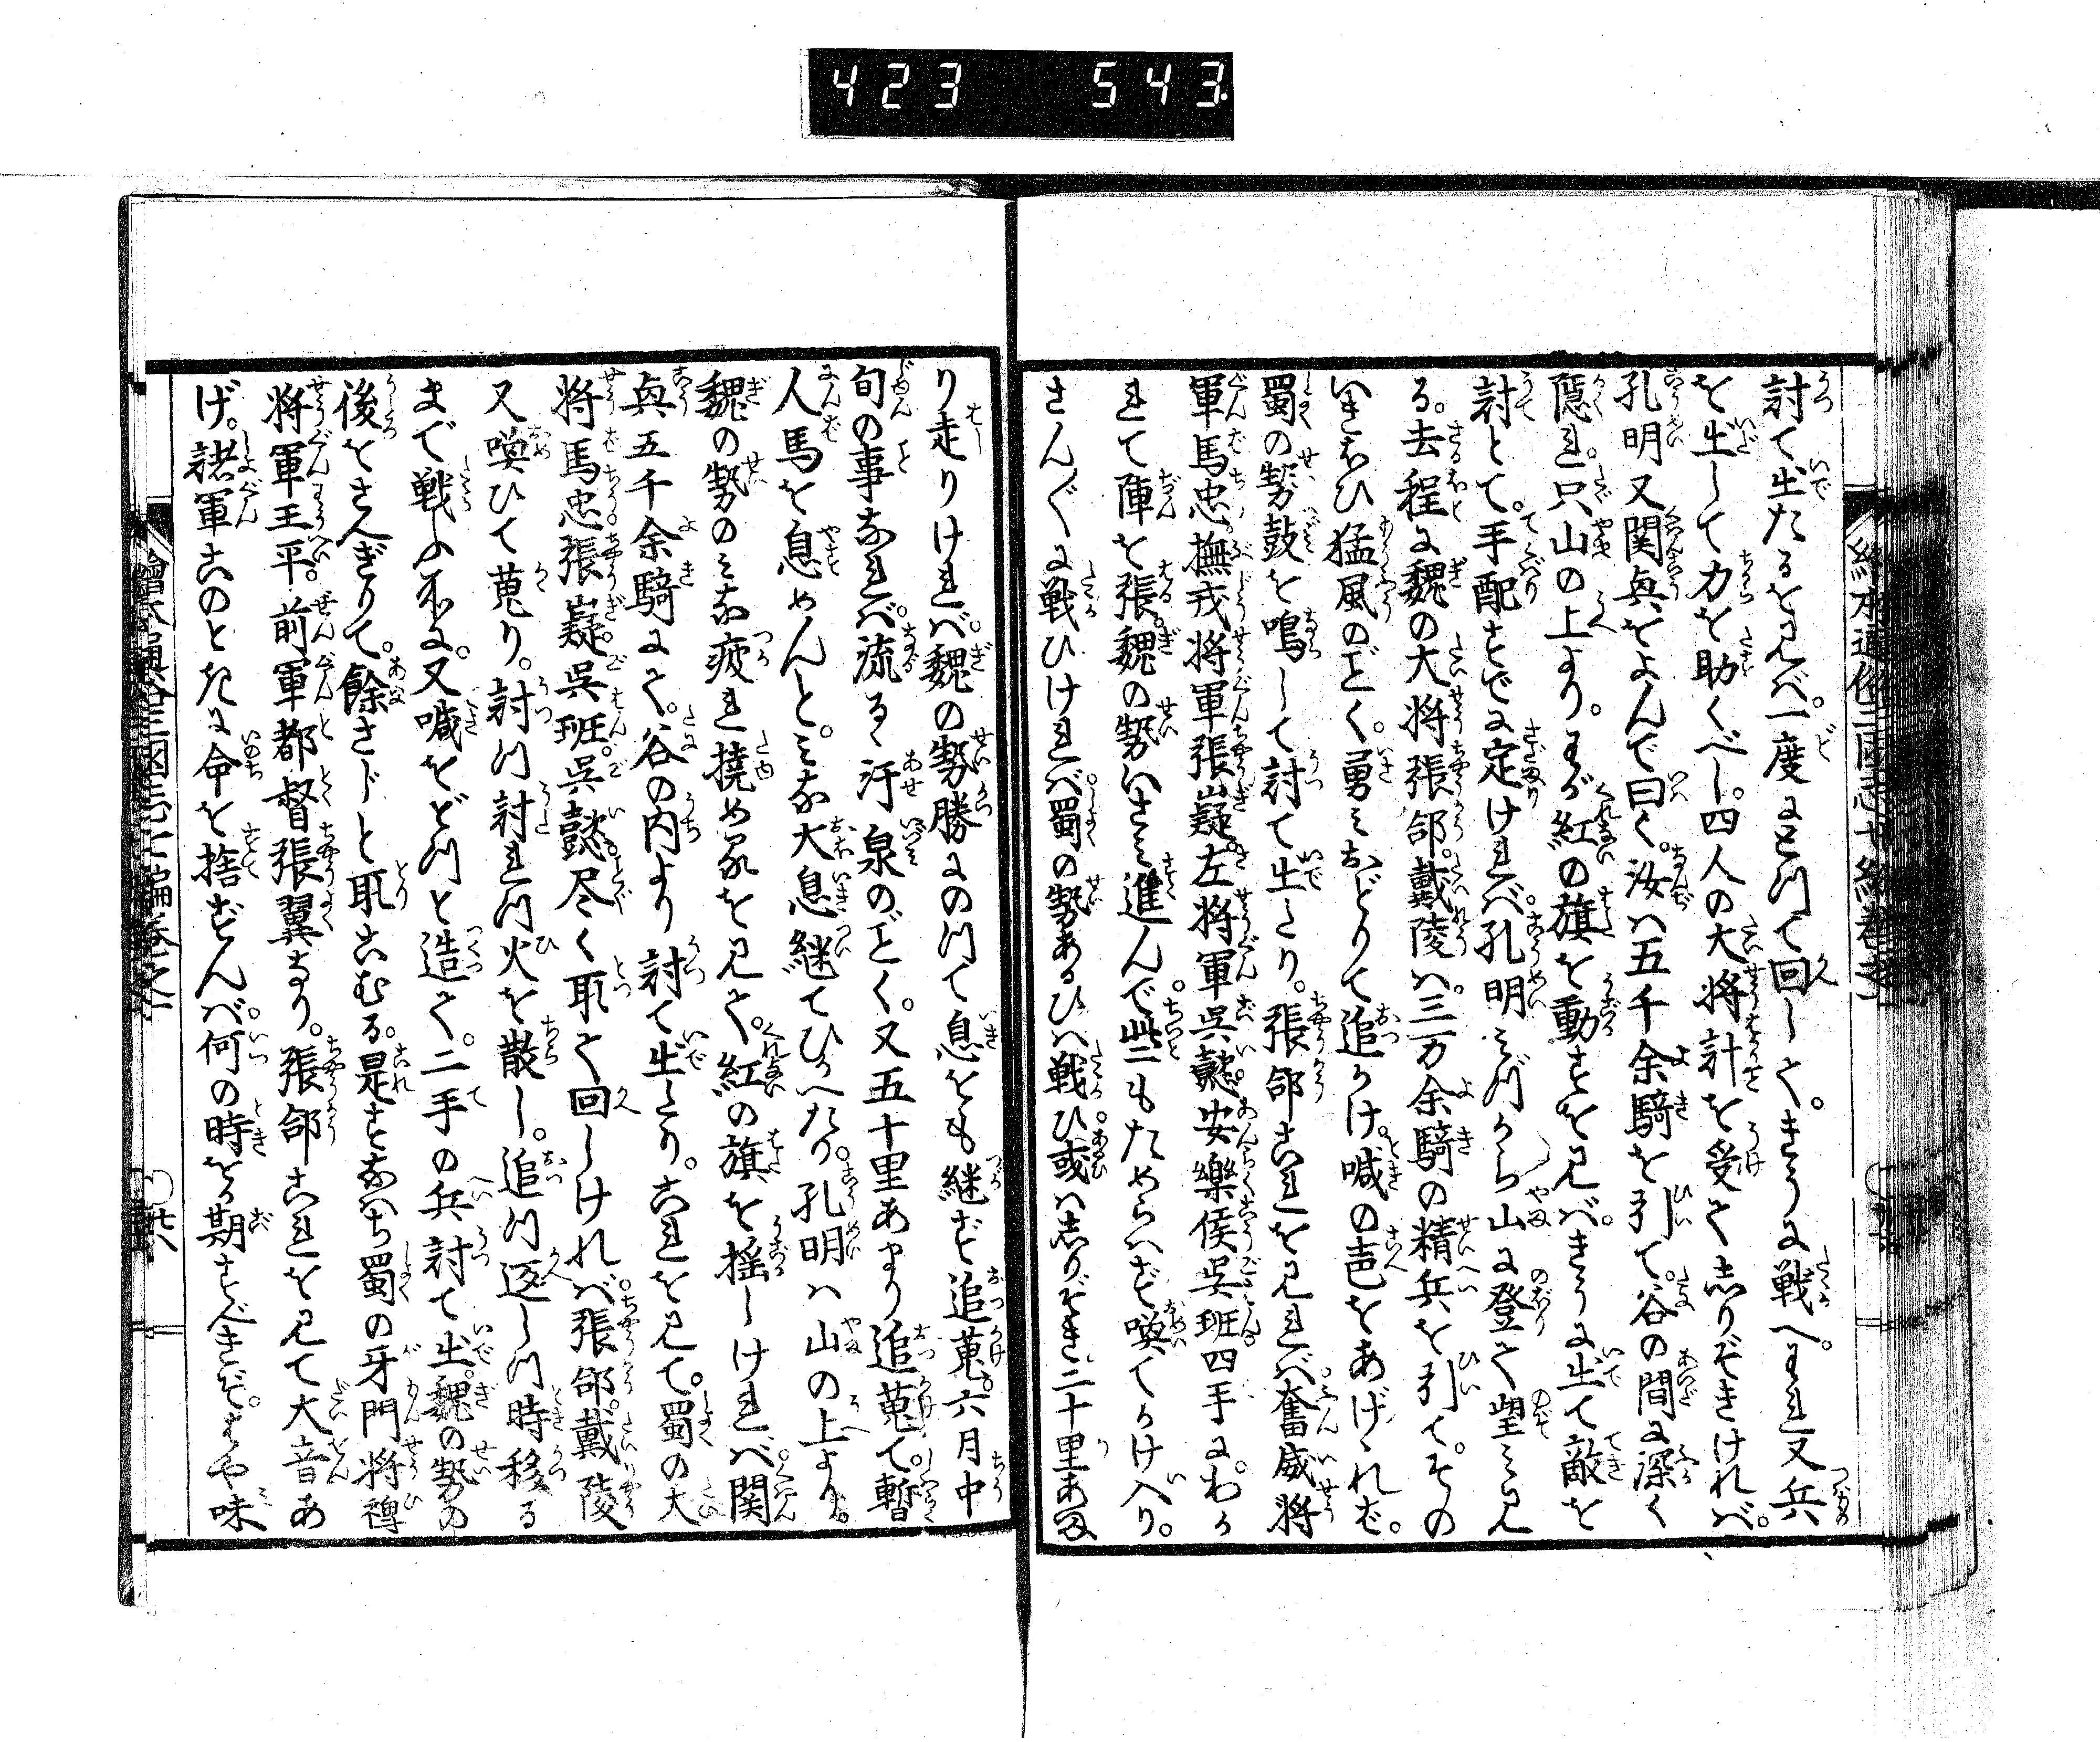 423 543
討て出たるを見ば。一度にどつて回して。きうに戦へ。われ又兵
を出して力を助くべし。四人の大将計を受てしりぞきければ。
孔明又関興をよんで曰く。汝は五千余騎を引て。谷の間に深く
隠れ。只山の上より。わが紅の旗を動すを見ば。きうに出て敵を
討とて。手配すでに定ければ。孔明みづから山に登て望み見
る。去程に魏の大将張郃。戴陵は。三万余騎の精兵を引て。その
いきおひ猛風のごとく。勇みおどりて追かけ。喊の声をあげゝれば。
蜀の勢鼓を鳴して討て出たり。張郃これを見れば奮威将
軍馬忠。撫戎将軍張嶷。左将軍呉懿。安樂侯呉班。四手にわか
れて陣を張。魏の勢いさみ進んで。些もためらはず喚てかけ入り。
さん〴〵に戦ひければ。蜀の勢あるひは戦ひ。或はしりぞき。二十里あま
り走りければ。魏の勢勝にのつて息をも継ず追蒐。六月中
旬の事なれば。流るゝ汗泉のごとく。又五十里あまり追蒐て。暫
人馬を息めんと。みな大息継てひかへたり。孔明は山の上より。
魏の勢のみな疲れ撓めるを見て。紅の旗を揺しければ。関
興五千余騎にて。谷の内より討て出たり。これを見て。蜀の大
将馬忠。張嶷。呉班。呉懿。尽く取て回しければ。張郃。戴陵
又喚ひて蒐り。討つ討れつ火を散し。追つ返しつ時移る
まで戦ふ所に。又喊をどつと造て。二手の兵討て出。魏の勢の
後をさへぎりて。餘さじと取こむる。是すなはち蜀の牙門将裨
将軍王平。前軍都督張翼なり。張郃これを見て大音あ
げ。諸軍このときに命を捨ずんば。何の時をか期すべきぞ。はや味